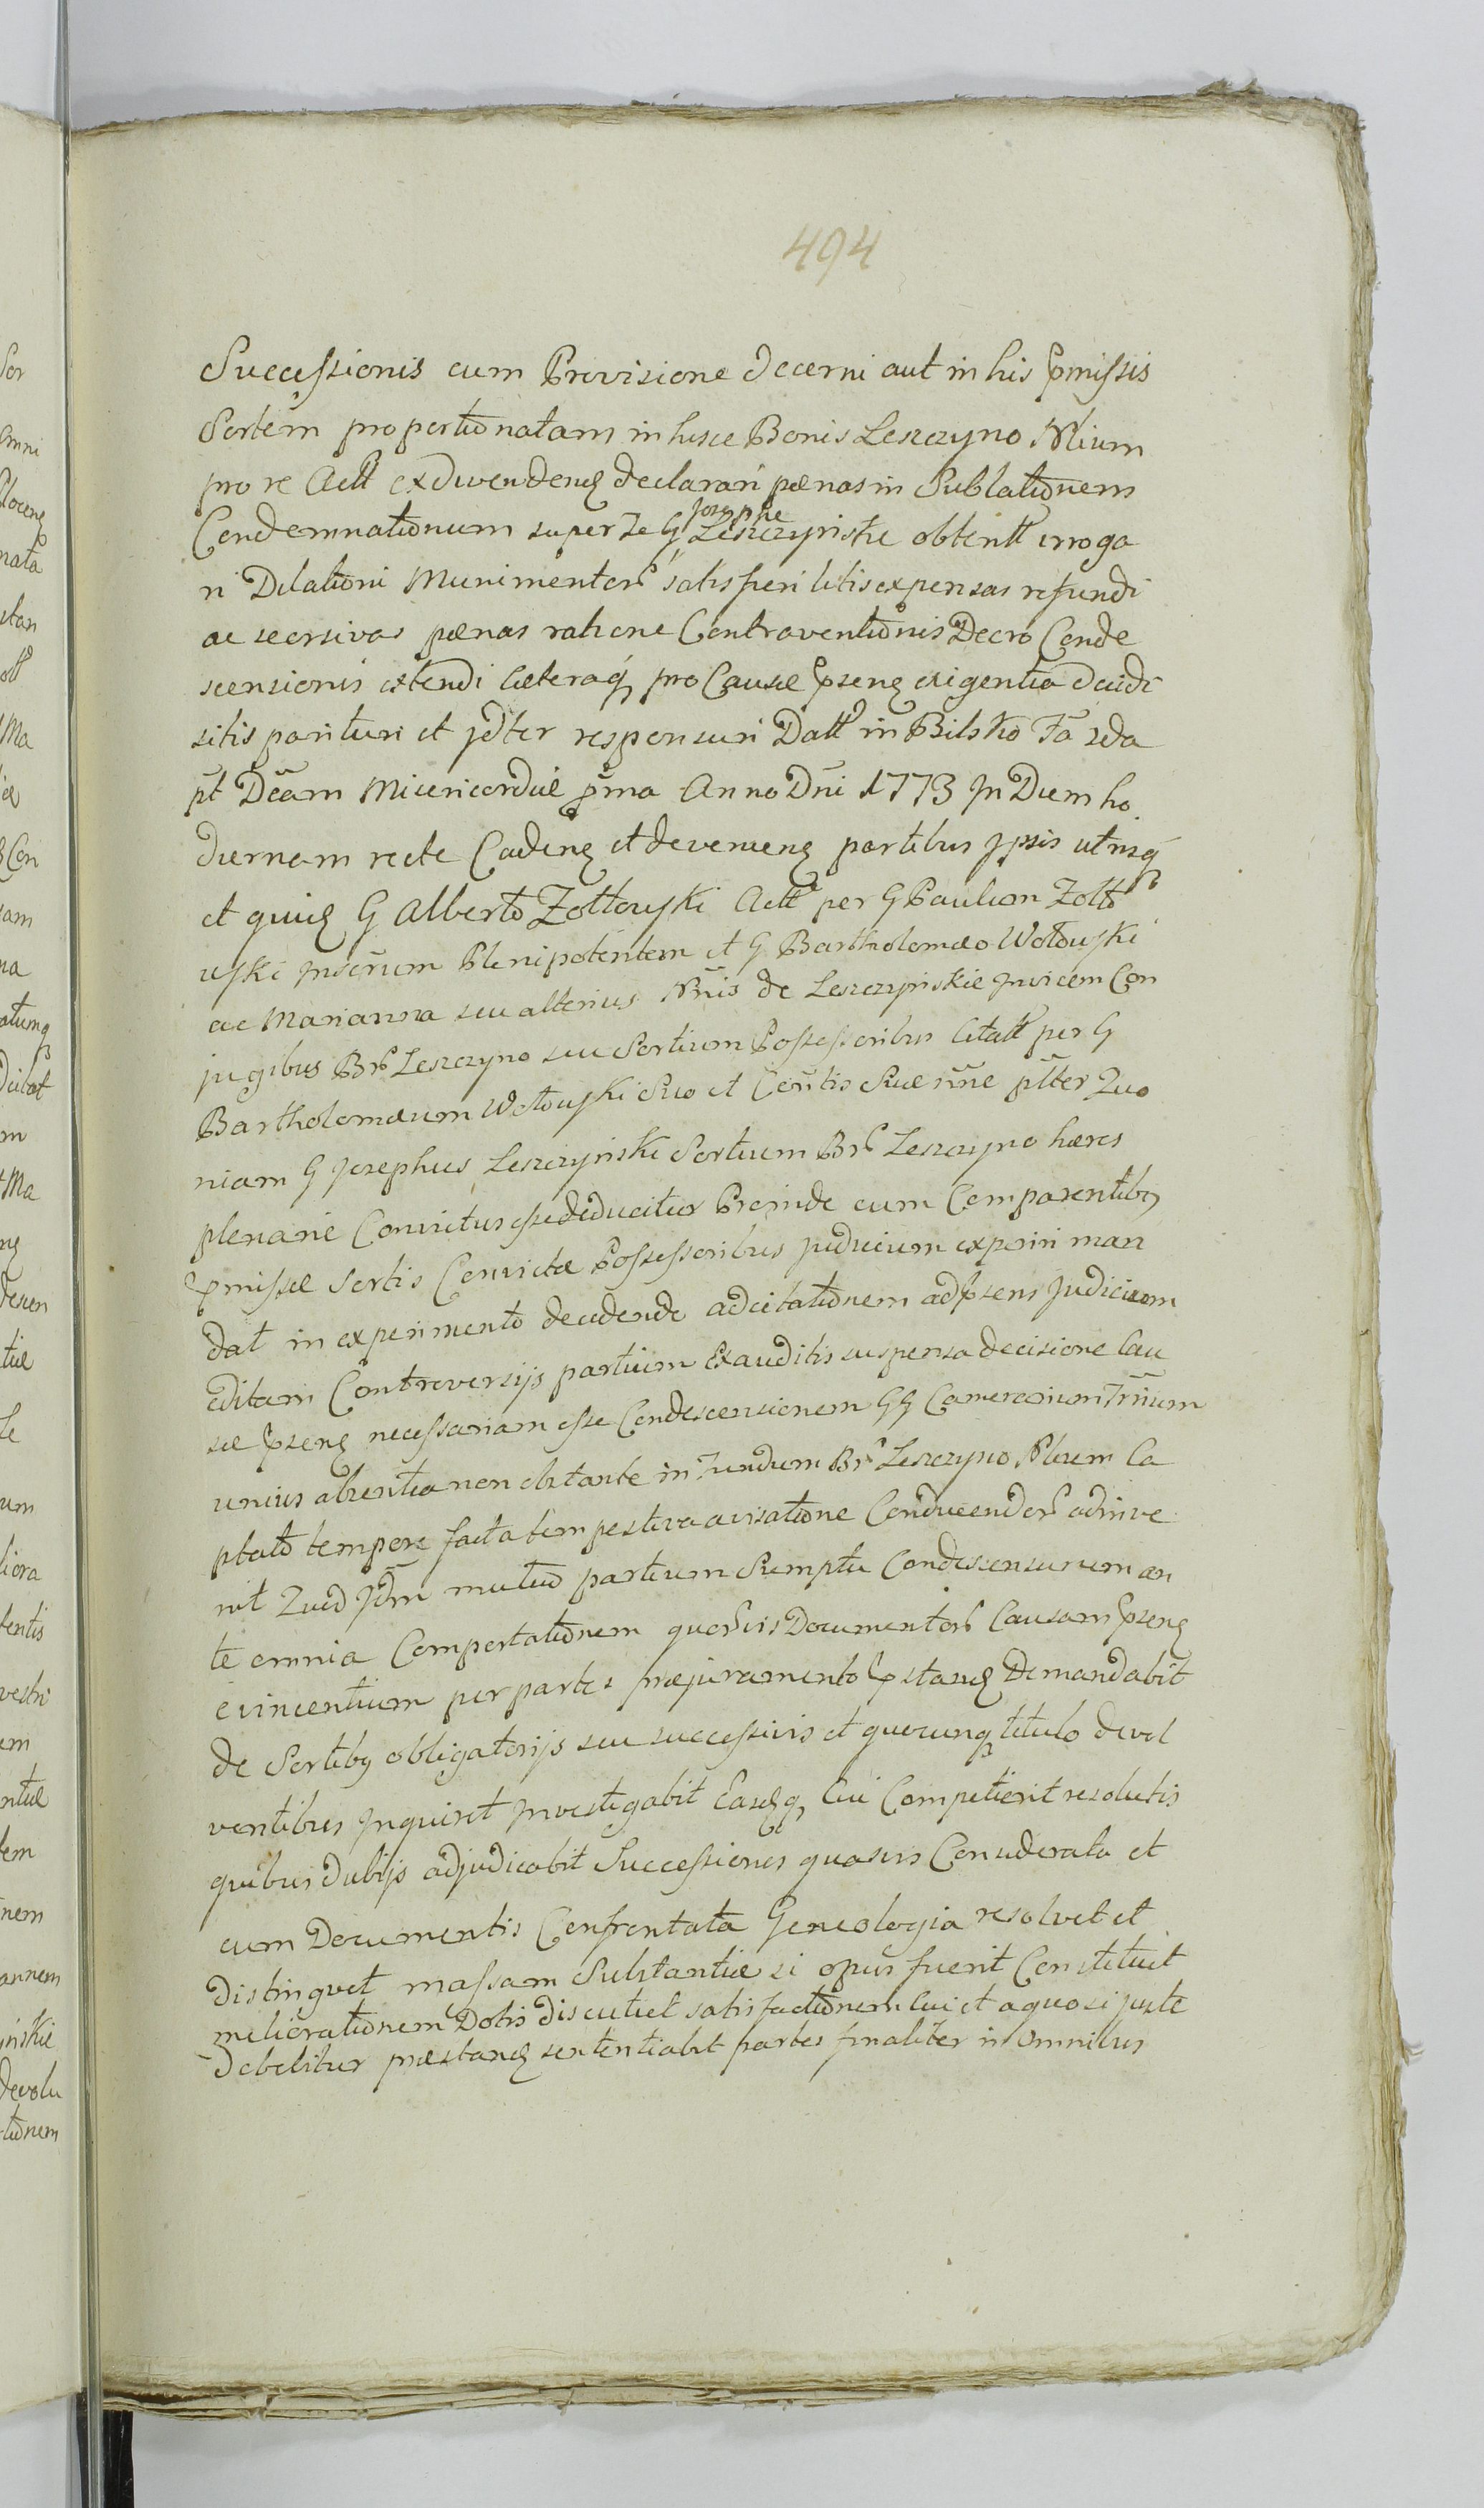 494
Successionis cum Provisione decerni aut in his pmissis
Sortem proportionatam in hisce Bonis Leszczyno Nlium
pro re Act exdivendenđ declarari pœnas in Sublationem
Condemnationum super se G Josephe Leszczynskie obtent irroga
ri Delationi Munimentor satisfieri litis expensas refundi
ac seorsivas pœnas ratione Contraventionis Decro Conde
scensionis extendi Cæteraq pro Causæ pseng exigentia decidi
sitis parituri et jdter responsuri Datt in Bilsko Fa 2da
pt Dcam Misericordiæ pma Anno Dni 1773 In Diem ho
diernam recte Cadeng et deveneng partibus ipsis utrisq
et quius G Alberto Zołtowski Act per G Paulum Zołto
wski Inserum Plenipotentem et G Bartholomæo Wołowski
ac Marianna seu alterius Nnis de Leszczynskie Invicem Con
jugibus Br Leszczyno seu Sortium Possessoribus Citatt per G
Bartholomæum Wołowski Suo et Contis Suæ nne ptter Quo
niam G Josephus Leszczynski Sortium Br Leszczyno hæres
plenarie Convictus esse deducitur Proinde cum Comparentibq
pmissæ Sortis Convictæ Possessoribus judicium experiri man
dat in experimento decidendo adcitationem ad psens Judicium
editam Controversijs partium Exauditis suspensa decisione Cau
sæ pseng necessariam esse Condescensionem GG Camerarium Trrium
unius absentia non obstante in Fundum Br Leszczyno Nlium Ca
ptato tempore facta tempestiva avisatione Conducendor adinve
nit Quod Jdm mutuo partium Sumptu Condescensurum an
te omnia Comportationem quorvis Documentor Causam pseng
evincentium per partes præjuramento pstand Demandabit
de Sortibq obligatorijs seu successivis et quocunq titulo devol
ventibus Inquiret Investigabit Easdq Cui Competierit resolutis
quibus dubijs adjudicabit Successiones quasvis Considerata et
cum Documentis Confrontata Geneologia resolvet et
distinguet massam Substantiæ si opus fuerit Constituet
meliorationem Dotis discutiet satisfactionem Cui et a quo si juste
debebitur præstand sententiabit partes finaliter in omnibus